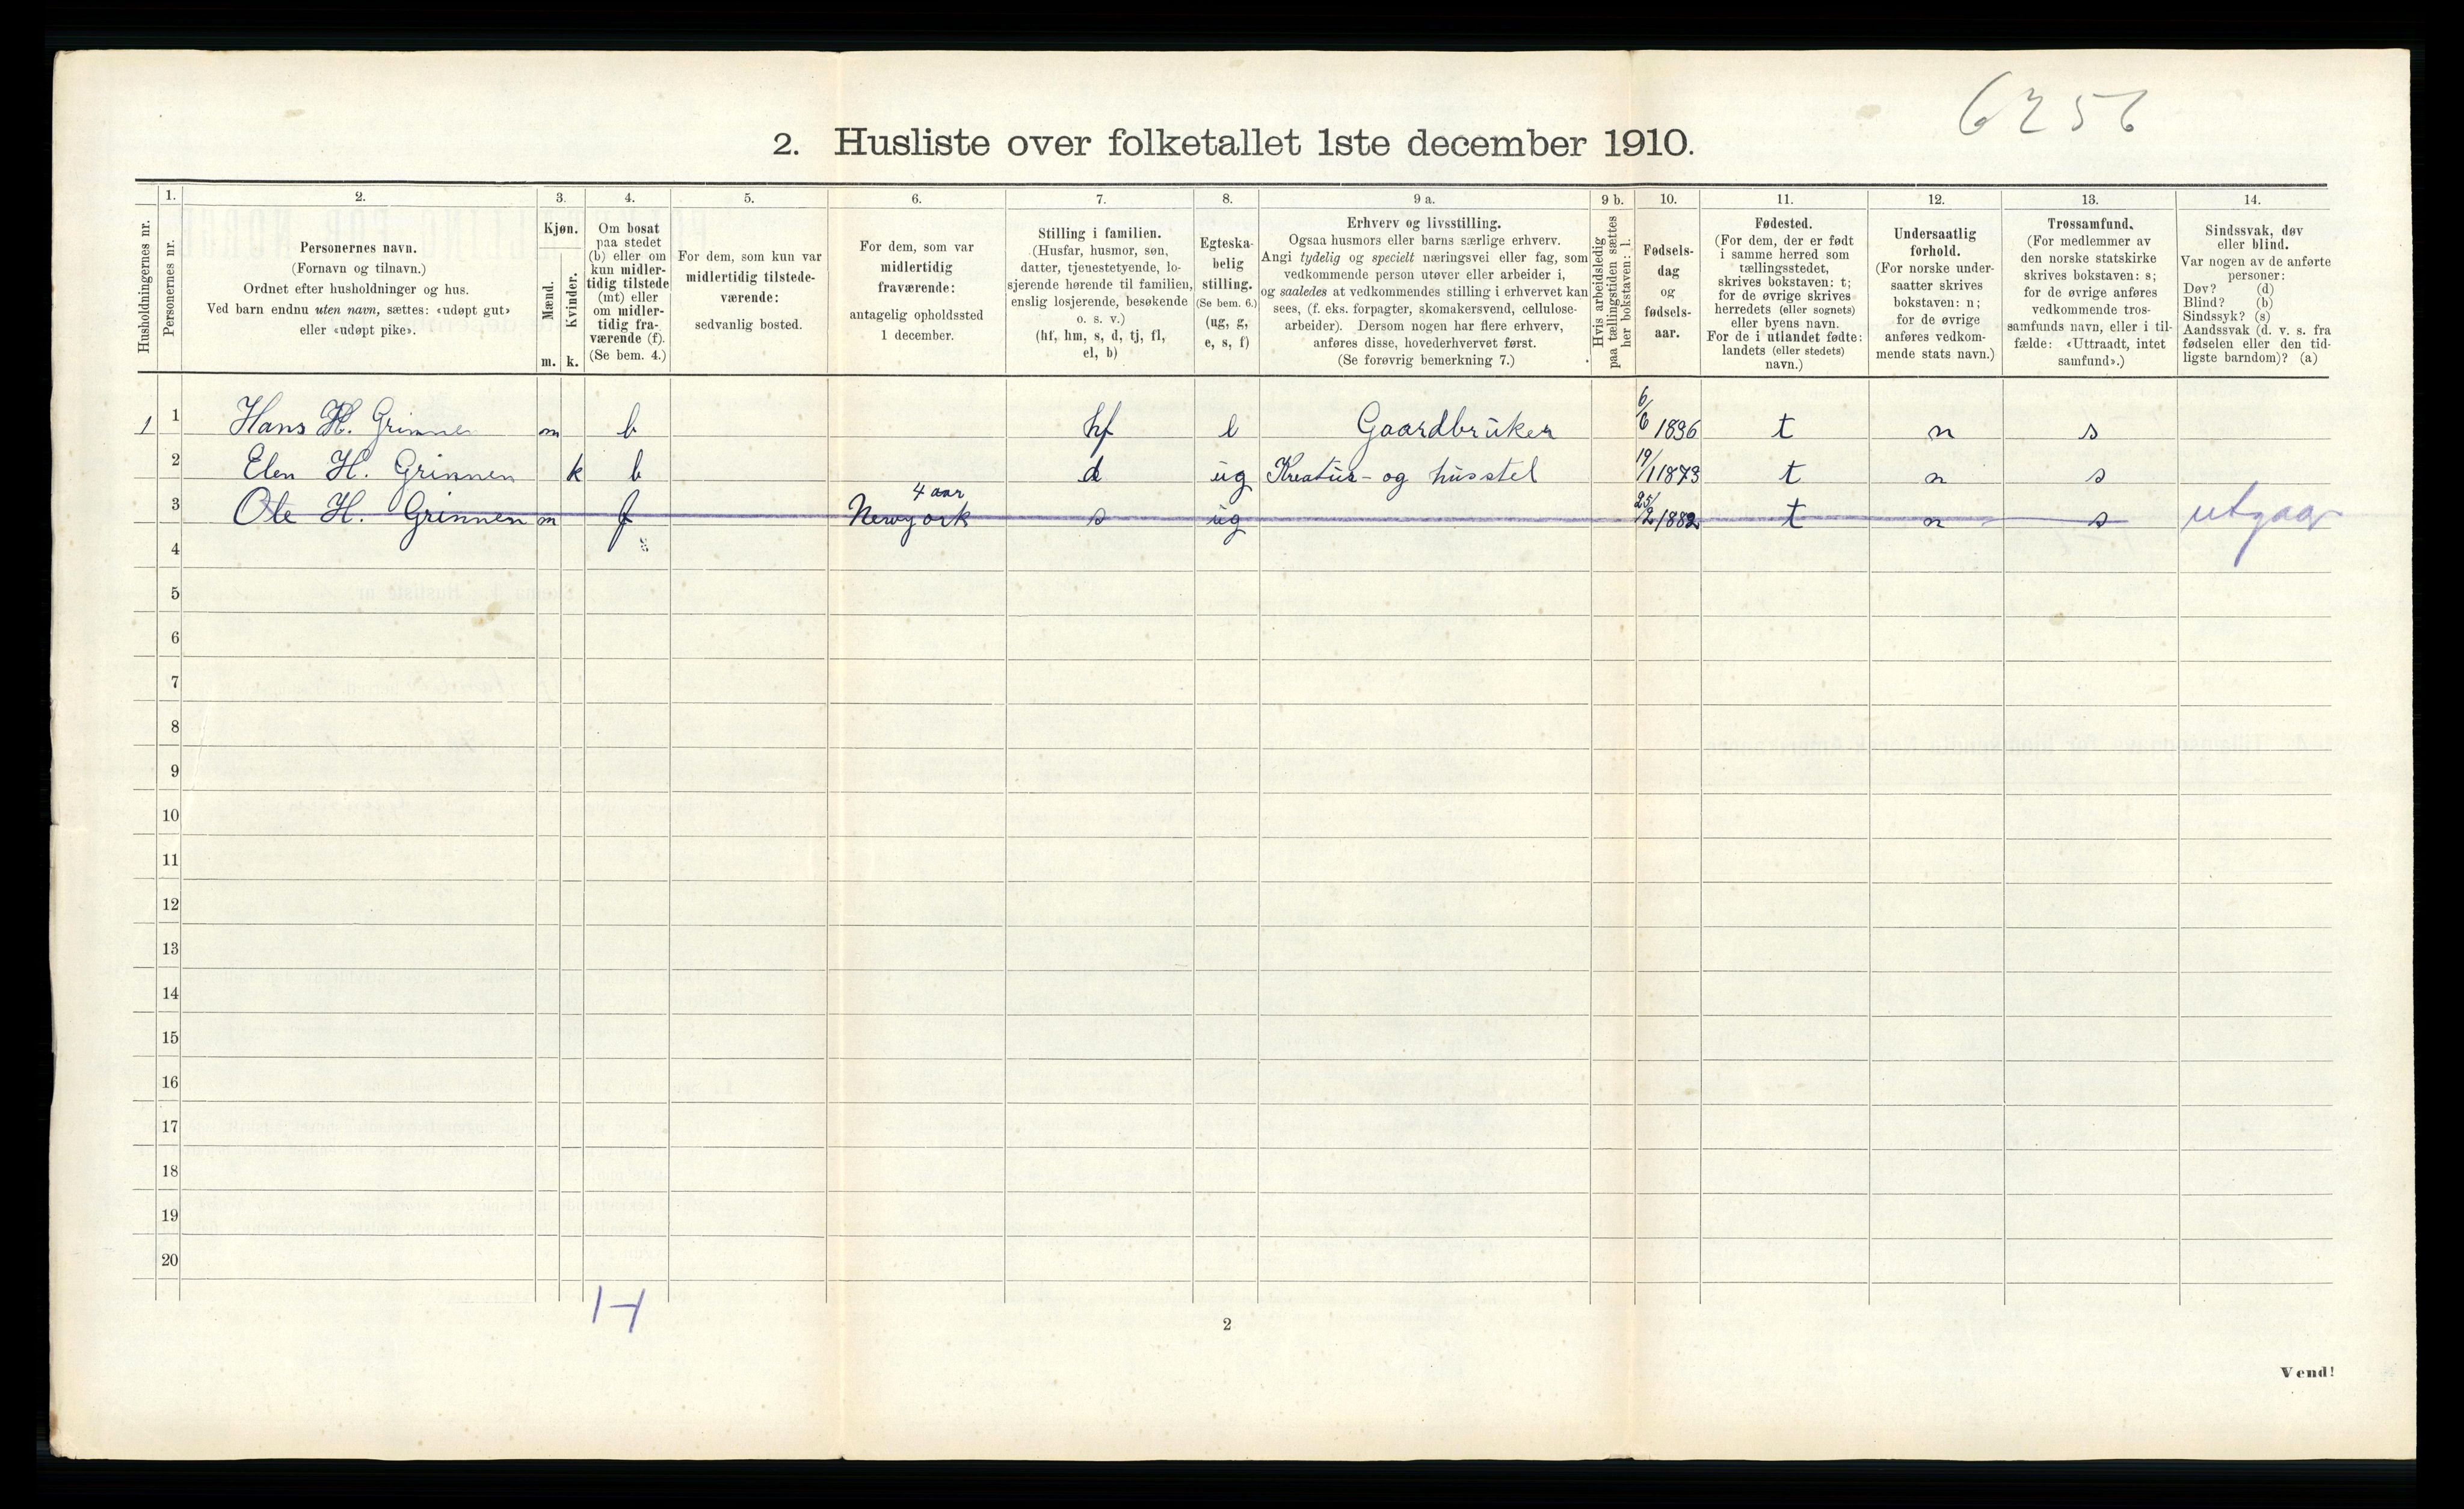 6256
2. Husliste over folketallet 1ste december 1910.
Husholdningernes nr.
1.
Personernes nr.
2.
Personernes navn.
(Fornavn og tilnavn.)
Ordnet efter husholdninger og hus.
Ved barn endnu uten navn, sættes: «udøpt gut»
eller «udøpt pike».
3.
Kjøn.
Mænd.
Kvinder.
m. k.
4.
Om bosat
paa stedet
(b) eller om
kun midler-
tidig tilstede
(mt) eller
om midler-
tidig fra-
værende (f).
(Se bem. 4.)
5.
For dem, som kun var
midlertidig tilstede-
værende:
sedvanlig bosted.
6.
For dem, som var
midlertidig
fraværende:
antagelig opholdssted
1 december.
7.
Stilling i familien.
(Husfar, husmor, søn,
datter, tjenestetyende, lo-
sjerende hørende til familien,
enslig losjerende, besøkende
o. s. v.)
(hf, hm, s, d, tj, fl,
el, b)
8.
Egteska-
belig
stilling.
(Se bem. 6.)
(ug, g,
e, s, f)
9 a.
Erhverv og livsstilling.
Ogsaa husmors eller barns særlige erhverv.
Angi tydelig og specielt næringsvei eller fag, som
vedkommende person utøver eller arbeider i,
og saaledes at vedkommendes stilling i erhvervet kan
sees, (f. eks. forpagter, skomakersvend, cellulose-
arbeider). Dersom nogen har flere erhverv,
anføres disse, hovederhvervet først.
(Se forøvrig bemerkning 7.)
9 b.
Hvis arbeidsledig
paa tællingstiden sættes
her bokstaven: l.
10.
Fødsels-
dag
og
fødsels-
aar.
11.
Fødested.
(For dem, der er født
i samme herred som
tællingsstedet,
skrives bokstaven: t;
for de øvrige skrives
herredets (eller sognets)
eller byens navn.
For de i utlandet fødte:
landets (eller stedets)
navn.)
12.
Undersaatlig
forhold.
(For norske under-
saatter skrives
bokstaven: n;
for de øvrige
anføres vedkom-
mende stats navn.)
13.
Trossamfund.
(For medlemmer av
den norske statskirke
skrives bokstaven: s;
for de øvrige anføres
vedkommende tros-
samfunds navn, eller i til-
fælde: «Uttraadt, intet
samfund».)
14.
Sindssvak, døv
eller blind.
Var nogen av de anførte
personer:
Døv? (d)
Blind? (b)
Sindssyk? (s)
Aandssvak (d. v. s. fra
fødselen eller den tid-
ligste barndom)? (a)
1 1 Hans H. Grinnen m b hf e Gaardbruker 6/6 1836 t n s
2 Elen H. Grinnen k b d ug Kreatur- og husstel 19/1 1873 t n s
4 aar
3 Ole H. Grinnen m f Newyork s ug 25/2 1882 t n s utgaar
4
5
6
7
8
9
10
11
12
13
14
15
16
17
18
19
20
2
Vend!